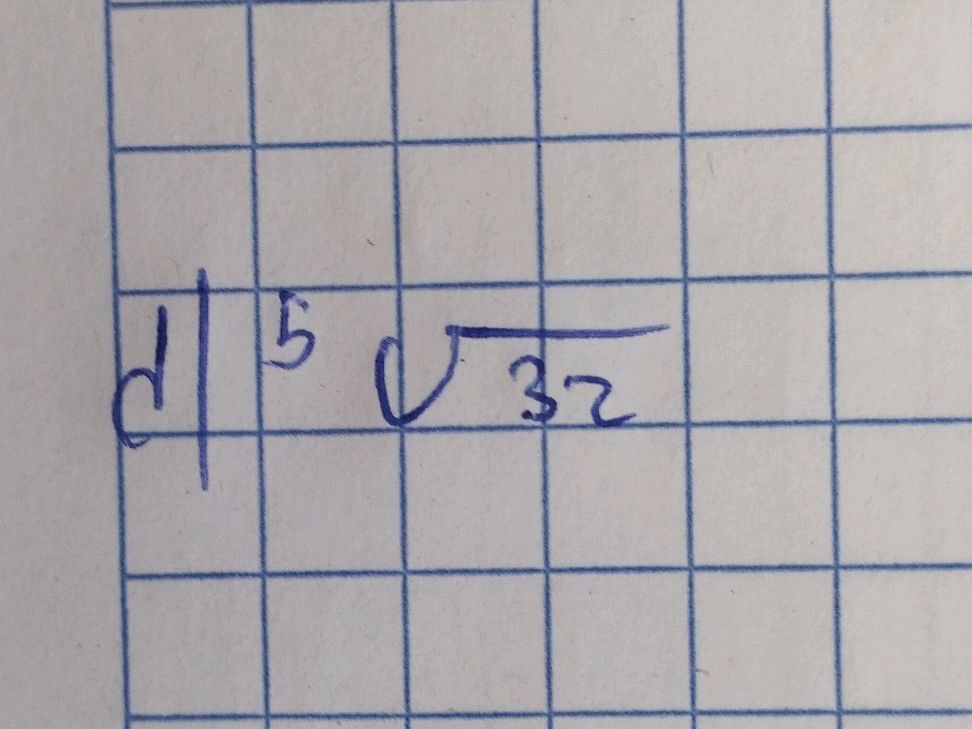 d| 5 √32